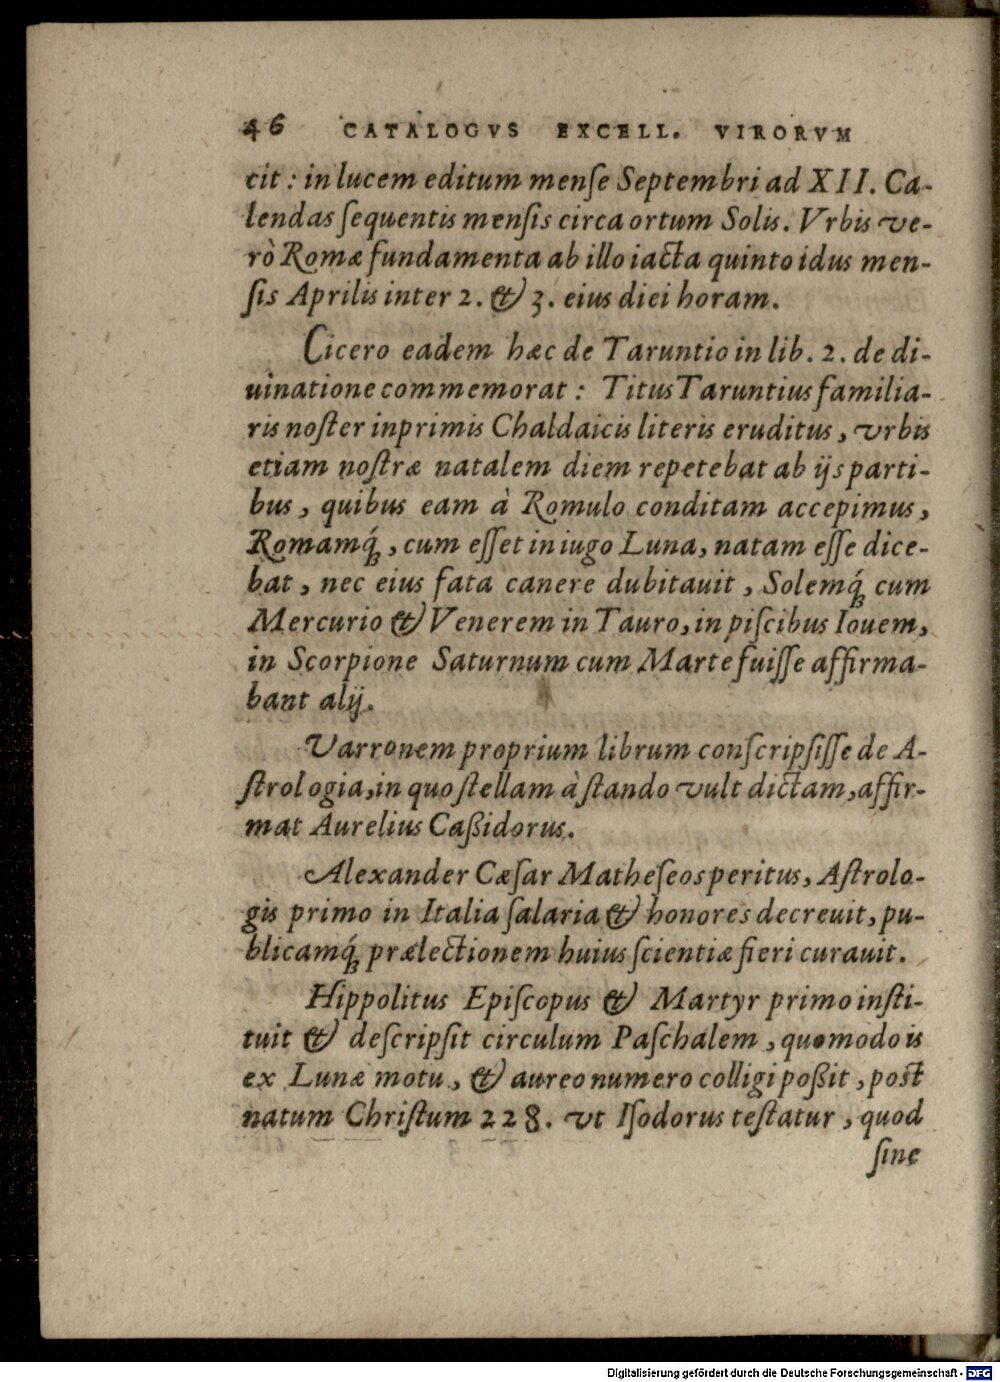 46 CATALOGVS EXCELL. VIRORVM
cit: in lucem editum menſe Septembri ad XII. Ca-
lendas ſequentis menſis circa ortum Solis. Vrbis ve-
rò Romæ fundamenta ab illo iacta quinto idus men-
ſis Aprilis inter 2. & 3. eius diei horam.
Cicero eadem hæc de Taruntio in lib. 2. de di-
uinatione commemorat: Titus Taruntius familia-
ris noſter inprimis Chaldaicis literis eruditus, vrbis
etiam noſtræ natalem diem repetebat ab ijs parti-
bus, quibus eam à Romulo conditam accepimus,
Romamq́;, cum eſſet in iugo Luna, natam eſſe dice-
bat, nec eius fata canere dubitauit, Solemq́; cum
Mercurio & Venerem in Tauro, in piſcibus Iouem,
in Scorpione Saturnum cum Marte fuiſſe affirma-
bant alij.
Varronem proprium librum conſcripſiſſe de A-
ſtrologia, in quo ſtellam à ſtando vult dictam, affir-
mat Aurelius Caßidorus.
Alexander Cæſar Matheſeos peritus, Aſtrolo-
gis primo in Italia ſalaria & honores decreuit, pu-
blicamq́; prælectionem huius ſcientiæ fieri curauit.
Hippolitus Epiſcopus & Martyr primo inſti-
tuit & deſcripſit circulum Paſchalem, quomodo is
ex Lunæ motu, & aureo numero colligi poßit, poſt
natum Chriſtum 228. vt Iſodorus teſtatur, quod
ſine
Digitalisierung gefördert durch die Deutsche Forschungsgemeinschaft - DFG